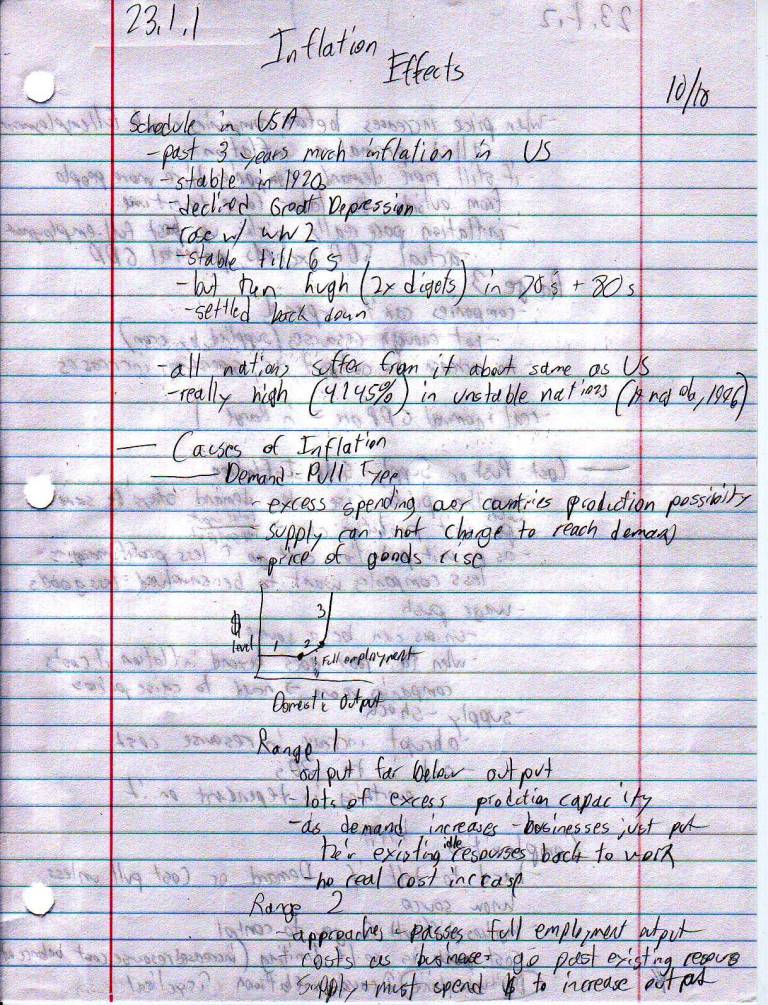 23.1.1
Inflation
Effects
10/18
Schedule in USA
-past 3 years much inflation in US
-stable in 1920s
-declined Great Depression
-rose w/ ww2
-stable till 6s
-but then hugh (2x digets) in 70s + 80s
-settled back down
-all nations suffer from it about same as US
-really high (4145%) in unstable nations (1996)
— Causes of Inflation
— Demand-Pull Type
- excess spending over countries production possibity
- supply can not change to reach demand
-price of goods rise
$ level
1 2 3
Full employment
Domestic Output
Range 1
-output far below output
-lots of excess prodction capacity
-as demand increases -businesses just put
their existing idle resourses back to work
-no real cost increase
Range 2
-approaches + passes full employment output
costs as business go past existing resours
supply + must spend $ to increase output